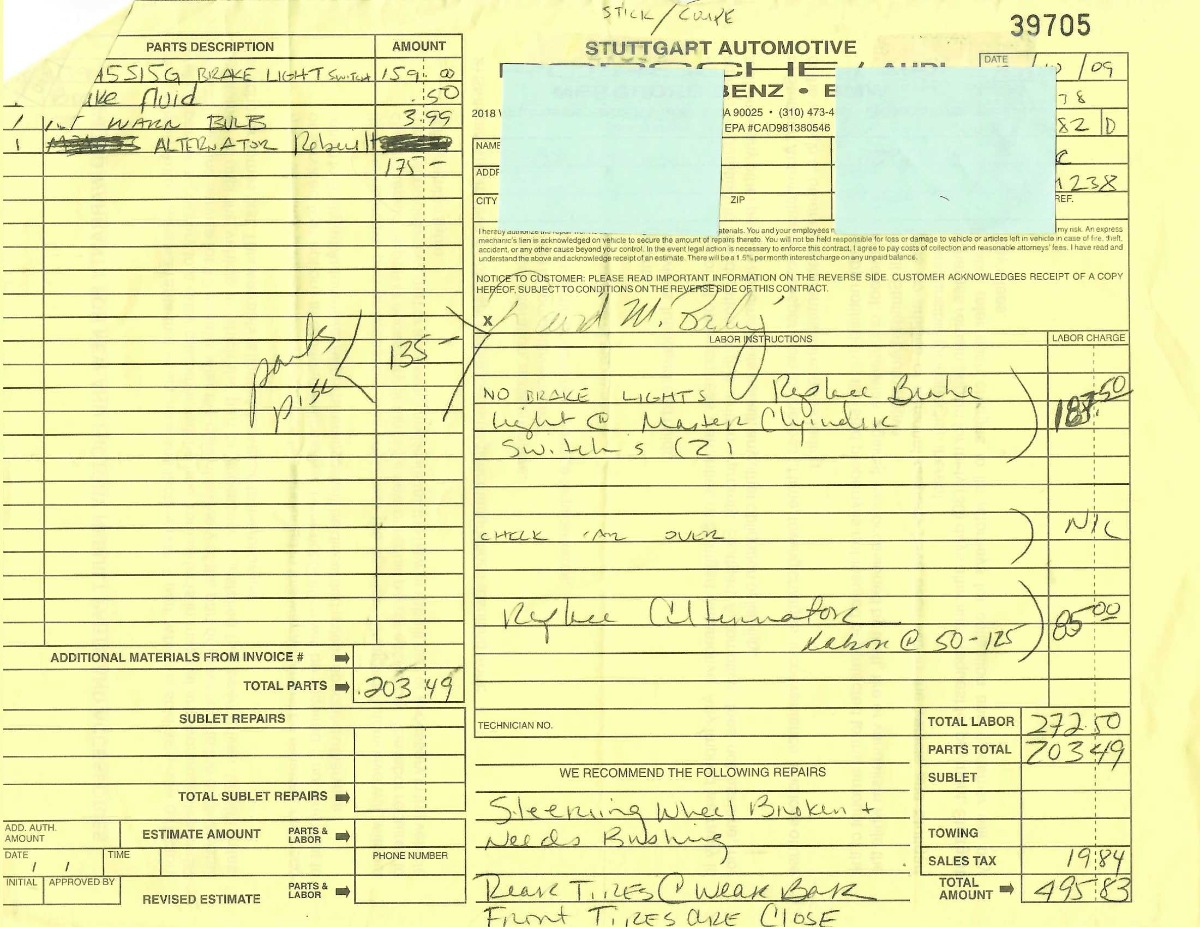 STICK / COUPE
39705
STUTTGART AUTOMOTIVE
BENZ •
2018
A 90025 • (310) 473-4
EPA #CAD981380546
DATE
/ 09
78
82 D
238
NAME
ADD
CITY
ZIP
REF.
PARTS DESCRIPTION AMOUNT
A5515G BRAKE LIGHT SWITCH 159.00
ke fluid .50
1 WARN BULB 3.99
1 ALTERNATOR Rebuilt
175-
parts 135-
ADDITIONAL MATERIALS FROM INVOICE #
TOTAL PARTS 203 49
SUBLET REPAIRS
TOTAL SUBLET REPAIRS
ADD. AUTH. AMOUNT
ESTIMATE AMOUNT PARTS & LABOR
DATE / / TIME PHONE NUMBER
INITIAL APPROVED BY
REVISED ESTIMATE PARTS & LABOR
I hereby authorize
aterials. You and your employees
my risk. An express
mechanic's lien is acknowledged on vehicle to secure the amount of repairs thereto. You will not be held responsible for loss or damage to vehicle or articles left in vehicle in case of fire, theft,
accident, or any other cause beyond your control. In the event legal action is necessary to enforce this contract, I agree to pay costs of collection and reasonable attorneys' fees. I have read and
understand the above and acknowledge receipt of an estimate. There will be a 1.5% per month interest charge on any unpaid balance.
NOTICE TO CUSTOMER: PLEASE READ IMPORTANT INFORMATION ON THE REVERSE SIDE. CUSTOMER ACKNOWLEDGES RECEIPT OF A COPY
HEREOF, SUBJECT TO CONDITIONS ON THE REVERSE SIDE OF THIS CONTRACT.
X
LABOR INSTRUCTIONS LABOR CHARGE
NO BRAKE LIGHTS Replace Brake
Light @ Master Clyinder 187.50
Switch s (2)
CHECK CAR OVER N/C
Replace Alternator 85.00
Labor @ 50-125
TECHNICIAN NO.
TOTAL LABOR 272.50
PARTS TOTAL 203 49
SUBLET
TOWING
SALES TAX 19.84
TOTAL AMOUNT 495.83
WE RECOMMEND THE FOLLOWING REPAIRS
Steering Wheel Broken +
Needs Bushing
Rear Tires @ Wear Bar
Front Tires are Close